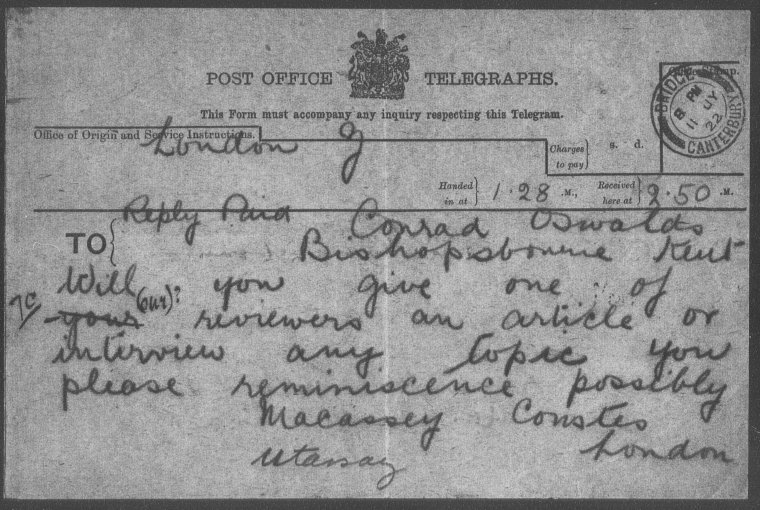 POST OFFICE TELEGRAPHS.
This Form must accompany any inquiry respecting this Telegram.
Office of Origin and Service Instructions.
London
Charges to pay} s. d.
BRIDGE CANTERBURY
8 PM
11 JY
22
Handed in at} 1.28 .M., Received here at} 2.50 .M.
Reply Paid Conrad Oswalds
TO{ Bishopsbourne Kent
Will you give one of
(our)?
your reviewers an article or
interview any topic you
please reminiscence possibly
Macassey Constes
London